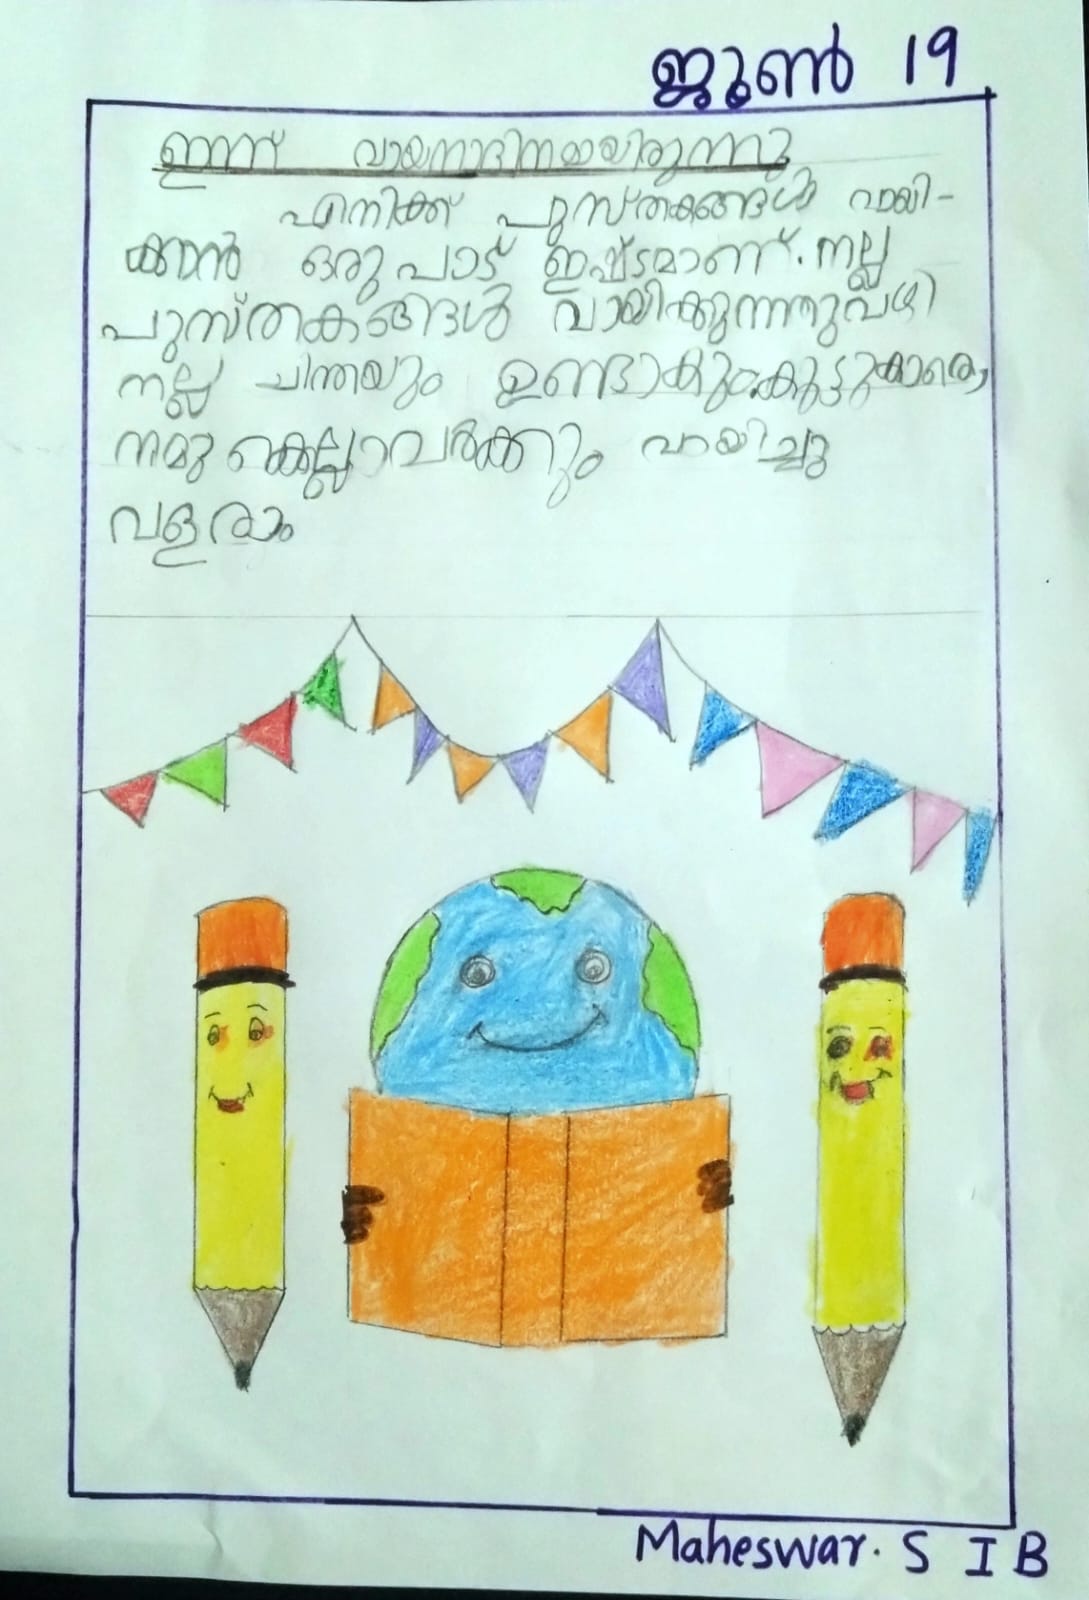 ജൂൺ 19
ഇന്ന് വായനാദിനമായിരുന്നു
എനിക്ക് പുസ്തകങ്ങൾ വായി-
ക്കാൻ ഒരുപാട് ഇഷ്ടമാണ്. നല്ല
പുസ്തകങ്ങൾ വായിക്കുന്നതുവഴി
നല്ല ചിന്തയും ഉണ്ടാകും.കൂട്ടുകാരെ,
നമുക്കെല്ലാവർക്കും വായിച്ചു
വളരാം
Maheswar. S I B